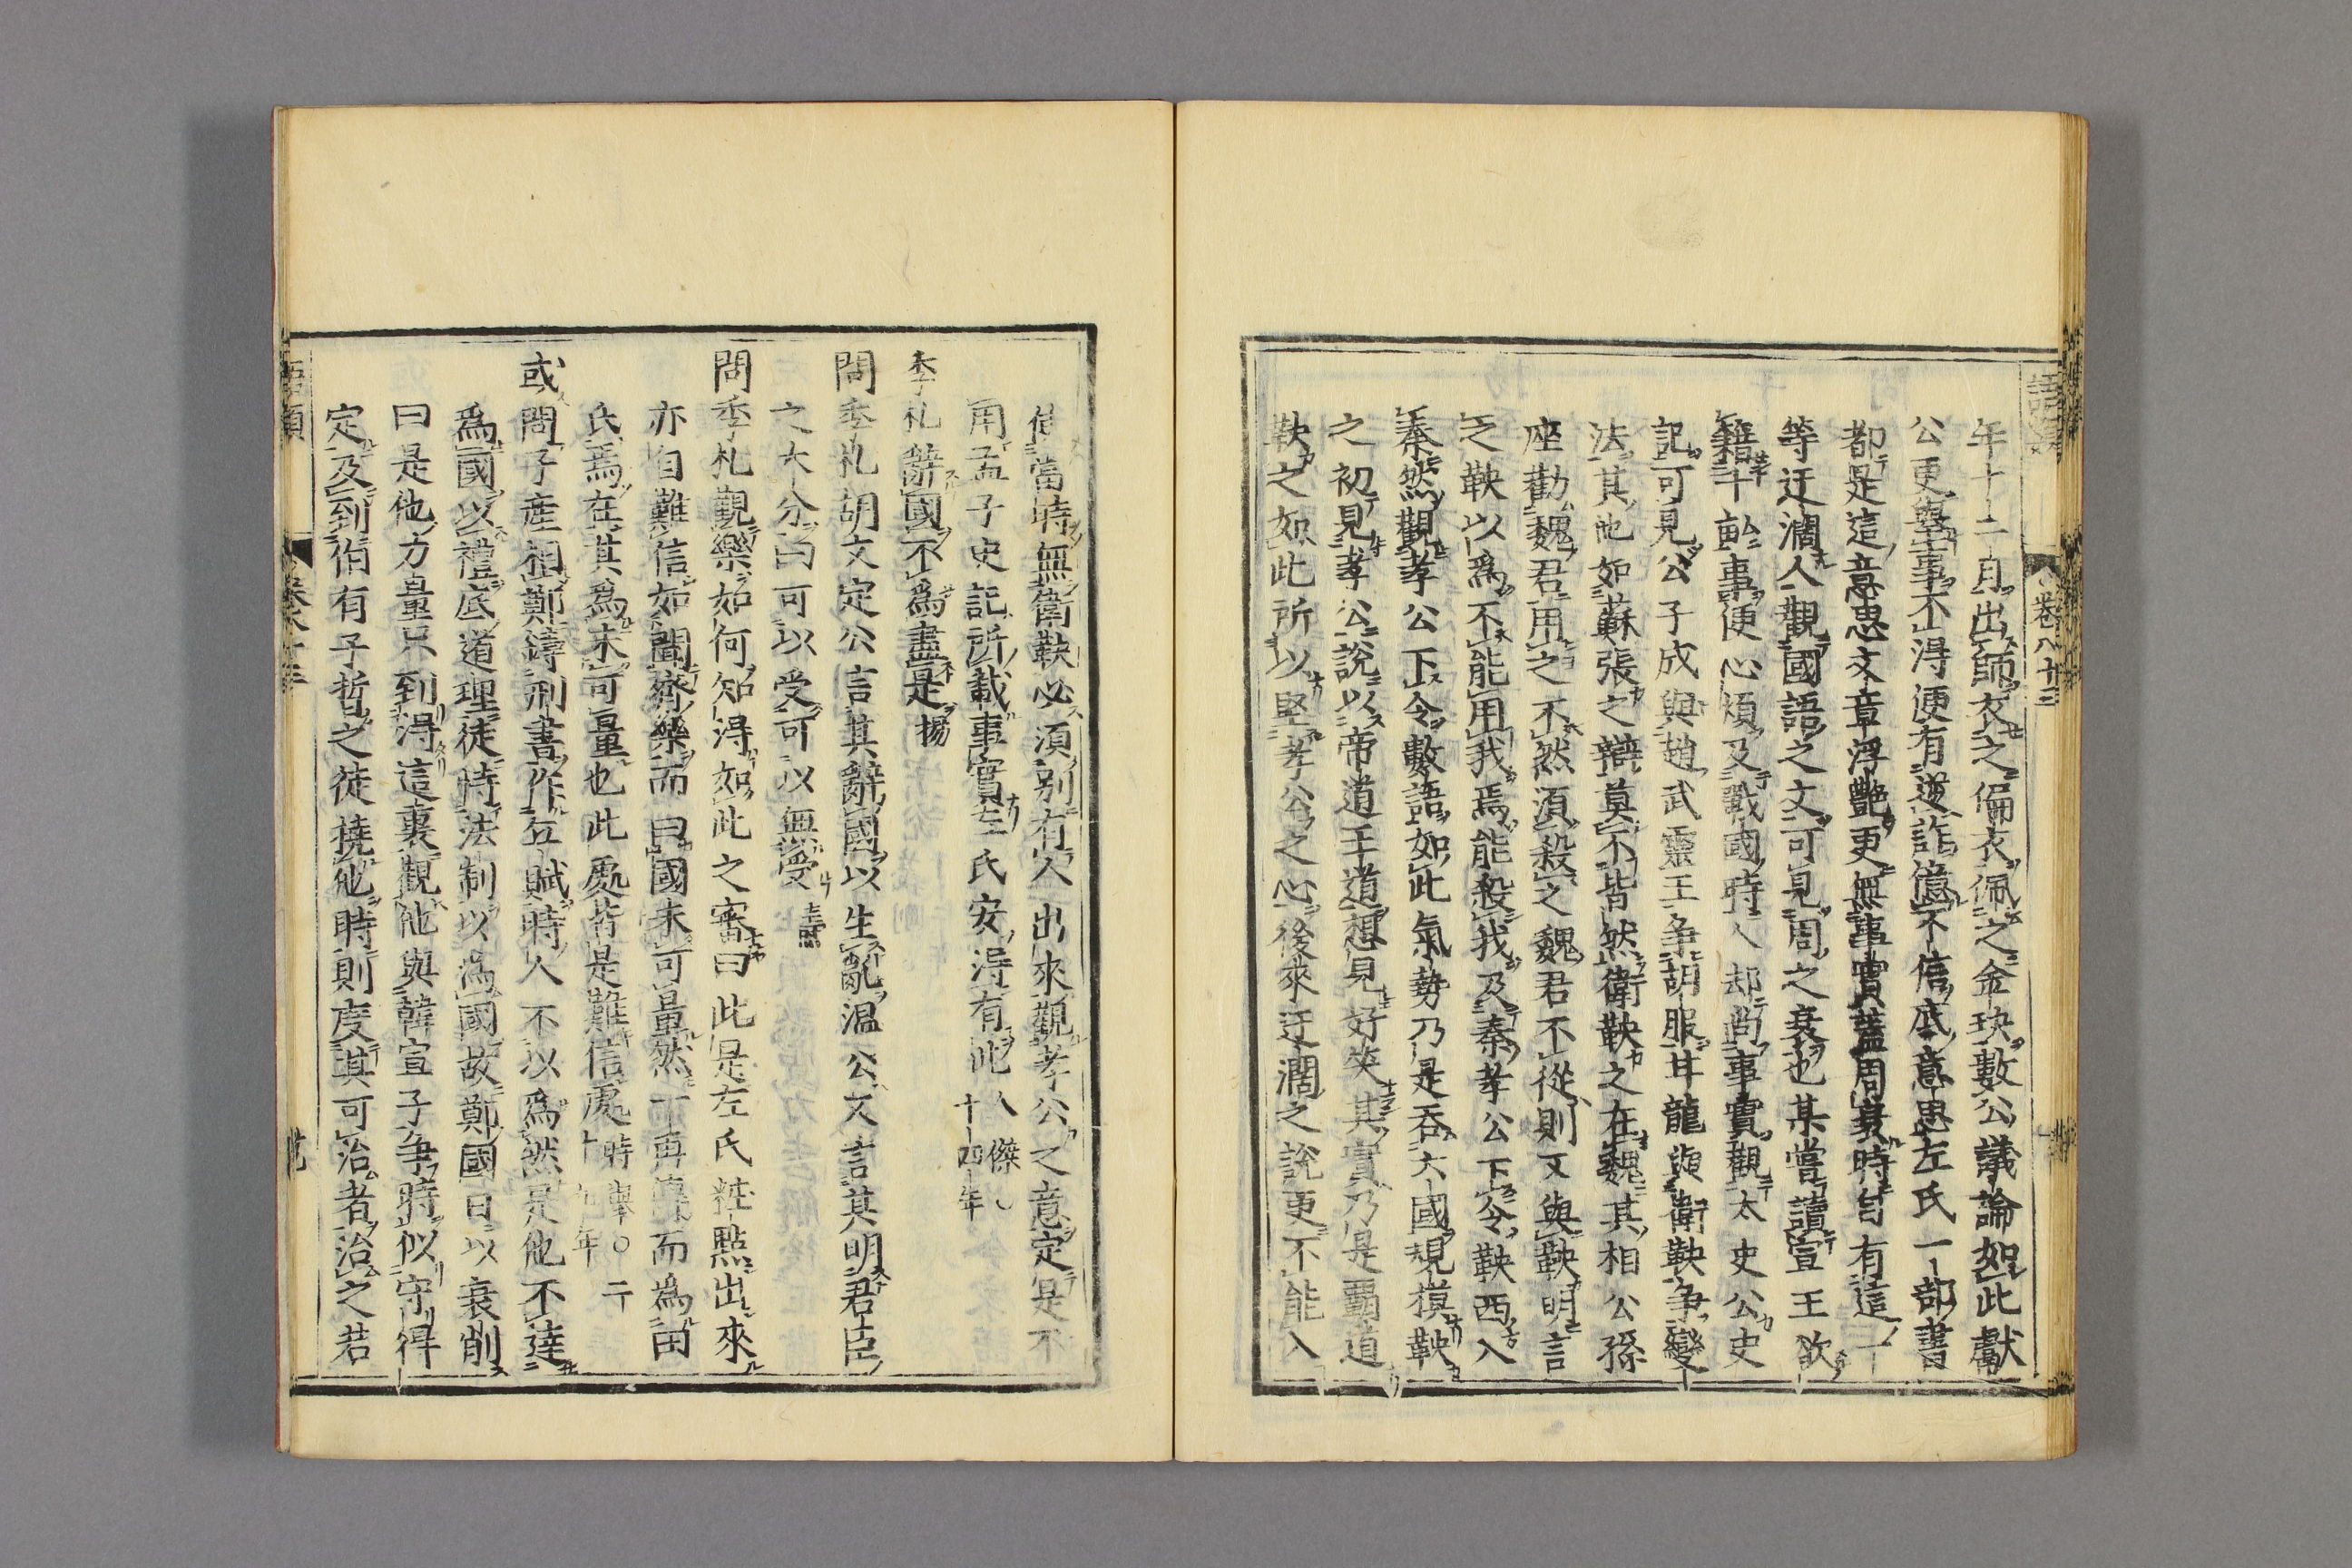 語類 卷八十三
年十二月出師衣之偏衣佩之金玦數公議論如此獻
公更擧事不得便有逆詐億不信底意思左氏一部書
都是這意思文章浮艷更無事實蓋周衰時自有這一
等迂濶人觀國語之文可見周之衰也某嘗讀宣王欲
籍千畝事便心煩及戰國時人却尚事實觀太史公史
記可見公子成與趙武靈王争胡服甘龍與衛鞅争變
法其他如蘇張之辯莫不皆然衛鞅之在魏其相公孫
座勸魏君用之不然須殺之魏君不從則又與鞅明言
之鞅以爲不能用我焉能殺我及秦孝公下令鞅西入
秦然觀孝公下令數語如此氣勢乃是吞六國規模鞅
之初見孝公說以帝道王道想見好笑其實乃是覇道
鞅之如此所以堅孝公之心後來迂濶之說更不能入
使當時無衛鞅必須別有人出來觀孝公之意定是不
用孟子史記所載事實左氏安得有此人傑〇十四年
季札辭國不爲盡是揚
問季札胡文定公言其辭國以生亂温公又言其明君臣
之大分曰可以受可以無受壽
問季札觀樂如何知得如此之審曰此是左氏粧點出來
亦自難信如聞齊樂而曰國未可量然一再傳而爲田
氏烏在其爲未可量也此處皆是難信處時擧〇二十九年
或問子産相鄭鑄刑書作丘賦時人不以爲然是他不達
爲國以禮底道理徒恃法制以爲國故鄭國日以衰削
曰是他力量只到得這裏觀他與韓宣子争時似守得
定及到伯有子晳之徒撓他時則度其可治者治之若
語類 卷八十三